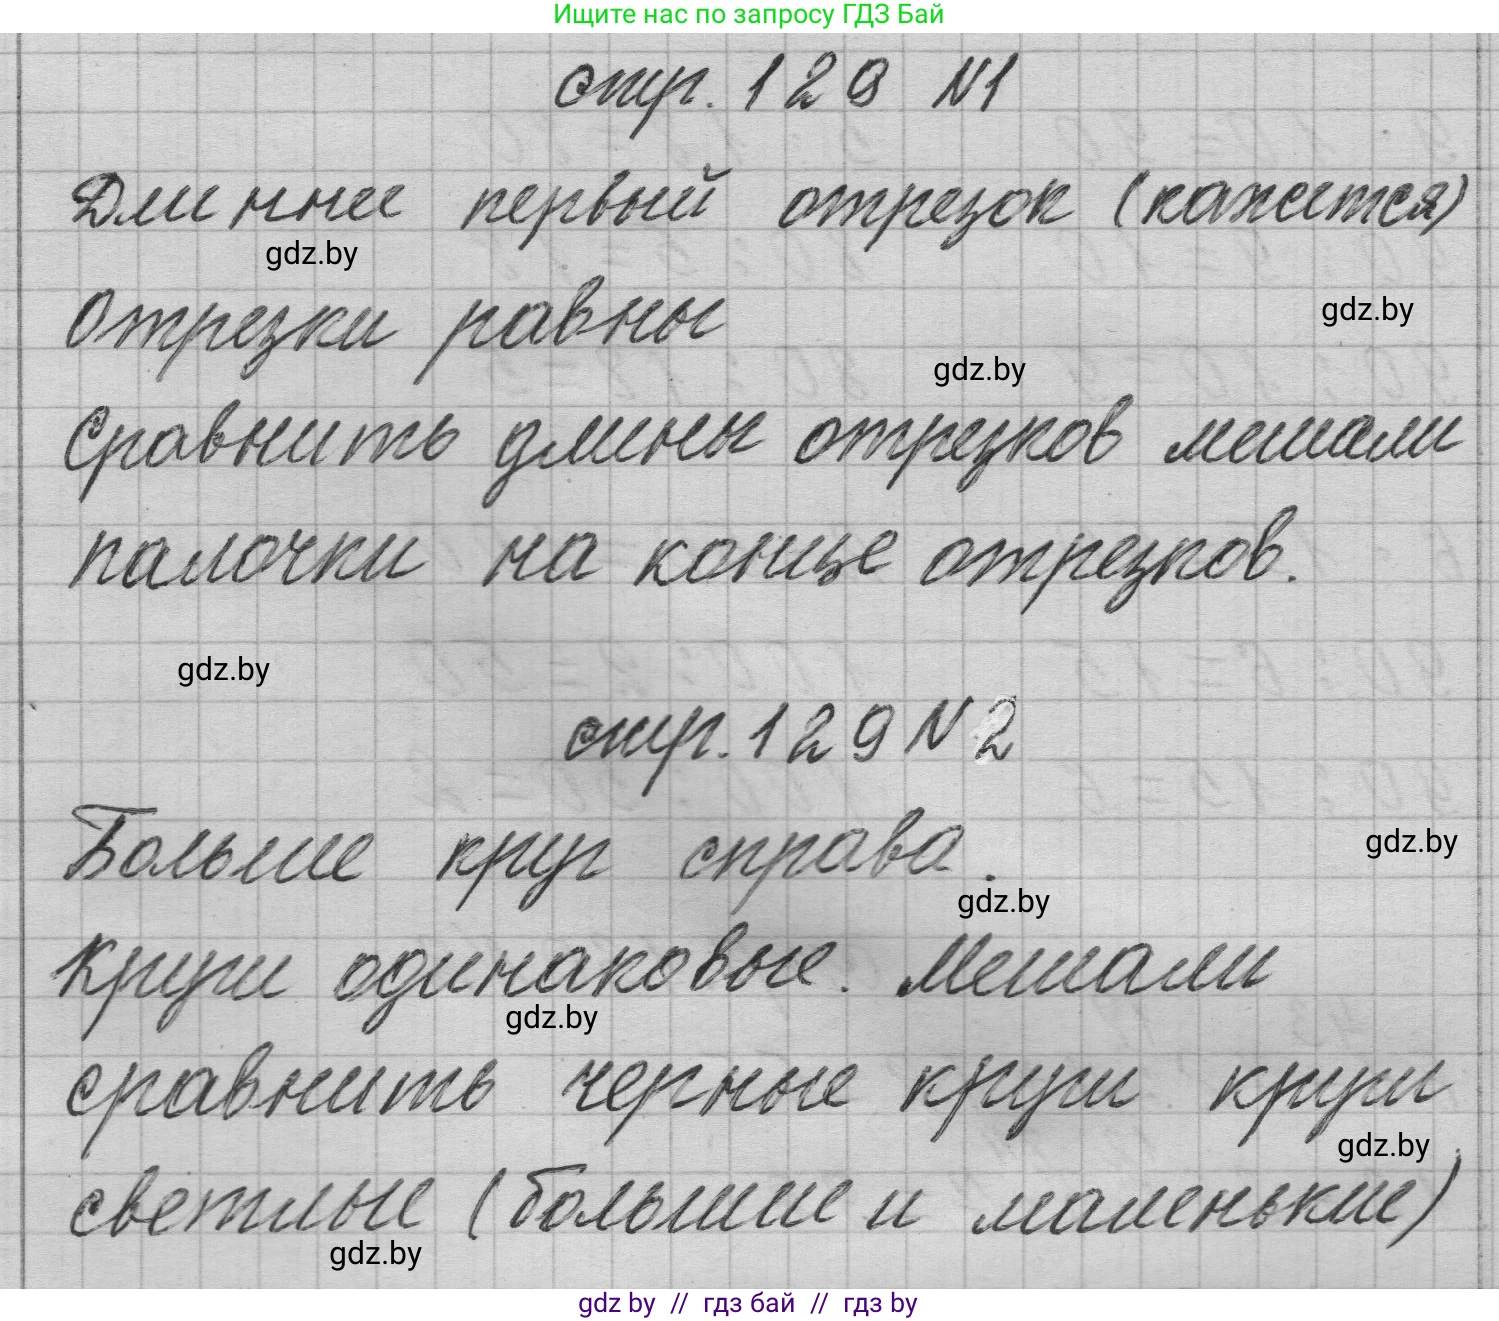 Ищите нас по запросу ГДЗ Бай
стр. 129 N1
Длиннее первый отрезок (кажется)
gdz.by
Отрезки равны
gdz.by
gdz.by
Сравнить длины отрезков мешали
палочки на конце отрезков.
gdz.by
стр. 129 N 2
Больше круг справа.
gdz.by
gdz.by
Круги одинаковые. Мешали
gdz.by
сравнить черные круги круги
gdz.by
светлые (большие и маленькие)
gdz.by
gdz by // гдз бай // гдз by